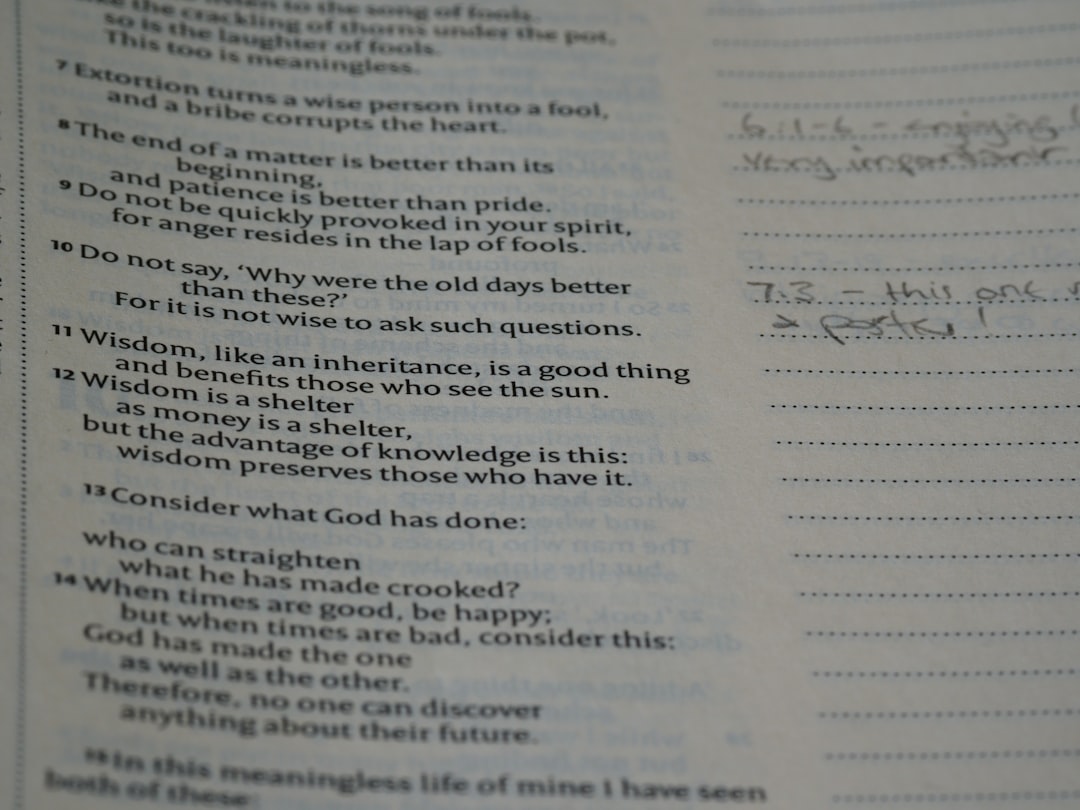 to the song of fools.
the crackling of thorns under the pot,
so is the laughter of fools.
This too is meaningless.
7 Extortion turns a wise person into a fool,
and a bribe corrupts the heart.
8 The end of a matter is better than its
beginning,
and patience is better than pride.
9 Do not be quickly provoked in your spirit,
for anger resides in the lap of fools.
10 Do not say, ‘Why were the old days better
than these?’
For it is not wise to ask such questions.
11 Wisdom, like an inheritance, is a good thing
and benefits those who see the sun.
12 Wisdom is a shelter
as money is a shelter,
but the advantage of knowledge is this:
wisdom preserves those who have it.
13 Consider what God has done:
who can straighten
what he has made crooked?
14 When times are good, be happy;
but when times are bad, consider this:
God has made the one
as well as the other.
Therefore, no one can discover
anything about their future.
15 In this meaningless life of mine I have seen
both of these
6:1-6 - enjoying
very important
7:3 - this one
a poster!